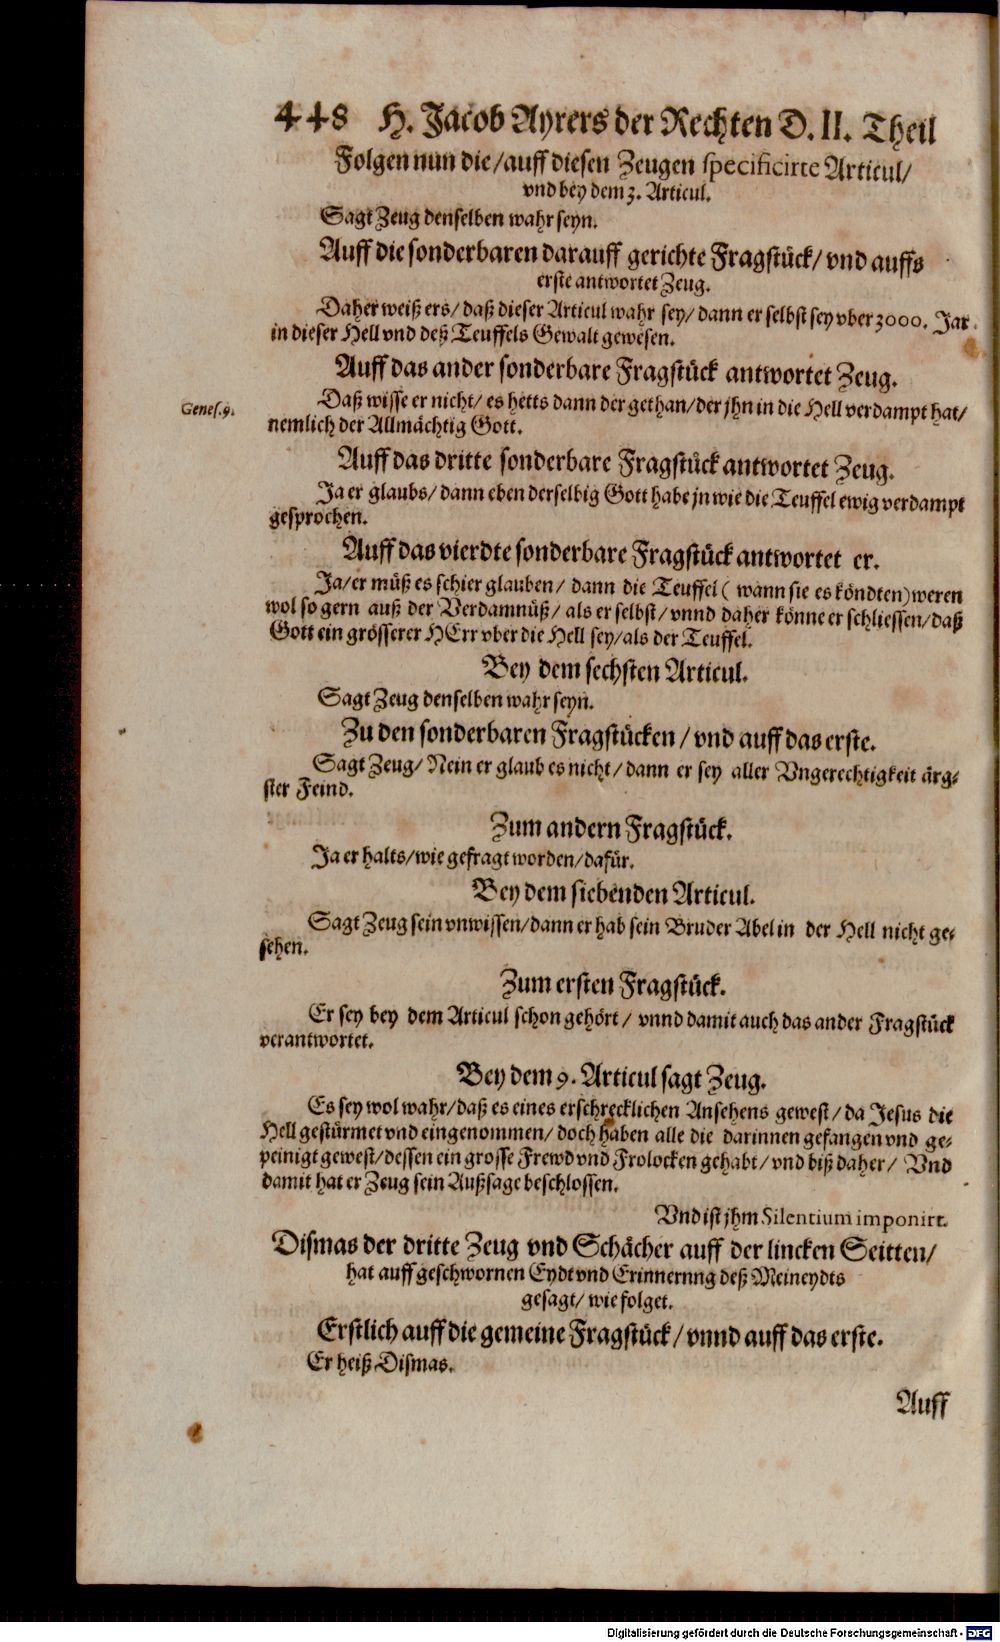 448 H. Jacob Ayrers der Rechten D. II. Theil
Folgen nun die/auff diesen Zeugen specificirte Articul/
vnd bey dem 3. Articul.
Sagt Zeug denselben wahr seyn.
Auff die sonderbaren darauff gerichte Fragstück/ vnd auffs
erste antwortet Zeug.
Daher weiß ers/ daß dieser Articul wahr sey/ dann er selbst sey vber 3000. Jar
in dieser Hell vnd deß Teuffels Gewalt gewesen.
Auff das ander sonderbare Fragstück antwortet Zeug.
Genes.9.
Daß wisse er nicht/ es hetts dann der gethan/der jhn in die Hell verdampt hat/
nemlich der Allmächtig Gott.
Auff das dritte sonderbare Fragstück antwortet Zeug.
Ja er glaubs/ dann eben derselbig Gott habe jn wie die Teuffel ewig verdampt
gesprochen.
Auff das vierdte sonderbare Fragstück antwortet er.
Ja/er müß es schier glauben/ dann die Teuffel ( wann sie es köndten) weren
wol so gern auß der Verdamnüß/ als er selbst/ vnnd daher könne er schliessen/daß
Gott ein grösserer HErr vber die Hell sey/als der Teuffel.
Bey dem sechsten Articul.
Sagt Zeug denselben wahr seyn.
Zu den sonderbaren Fragstücken / vnd auff das erste.
Sagt Zeug/ Nein er glaub es nicht/ dann er sey aller Vngerechtigkeit ärg-
ster Feind.
Zum andern Fragstück.
Ja er halts/wie gefragt worden/dafür.
Bey dem siebenden Articul.
Sagt Zeug sein vnwissen/dann er hab sein Bruder Abel in der Hell nicht ge-
sehen.
Zum ersten Fragstück.
Er sey bey dem Articul schon gehört / vnnd damit auch das ander Fragstück
verantwortet.
Bey dem 9. Articul sagt Zeug.
Es sey wol wahr/daß es eines erschrecklichen Ansehens gewest/ da Jesus die
Hell gestürmet vnd eingenommen/ doch haben alle die darinnen gefangen vnd ge-
peinigt gewest/dessen ein grosse Frewd vnd Frolocken gehabt/ vnd biß daher/ Vnd
damit hat er Zeug sein Außsage beschlossen.
Vnd ist jhm Silentium imponirt.
Dismas der dritte Zeug vnd Schächer auff der lincken Seitten/
hat auff geschwornen Eydt vnd Erinnernng deß Meineydts
gesagt/ wie folget.
Erstlich auff die gemeine Fragstück/ vnnd auff das erste.
Er heiß Dismas.
Auff
Digitalisierung gefördert durch die Deutsche Forschungsgemeinschaft - DFG